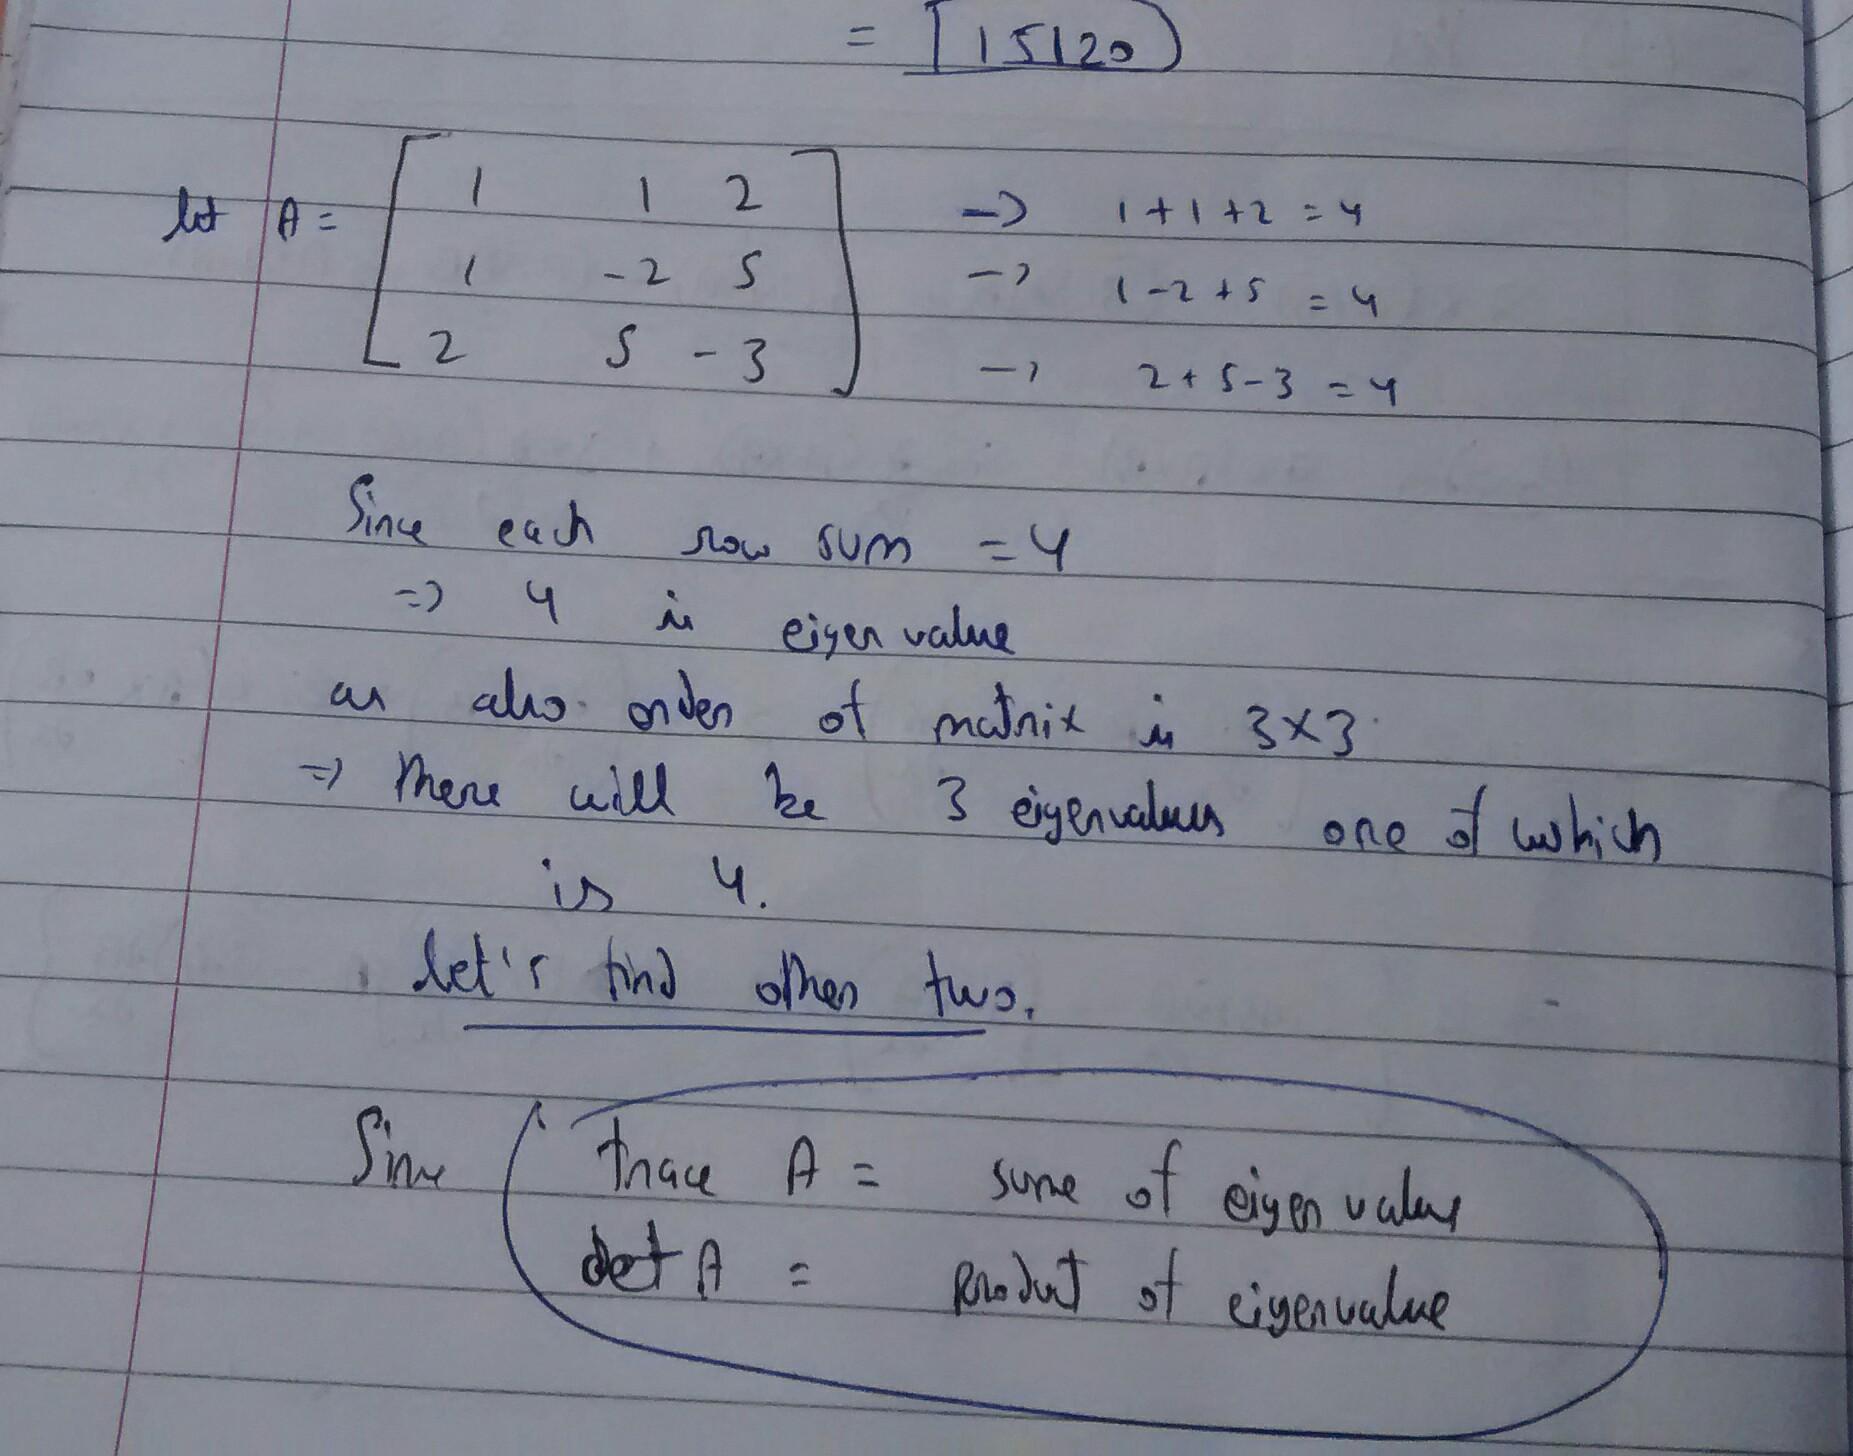 = 15120
let A = [ 1 1 2 → 1+1+2 = 4
1 -2 5 → 1-2+5 = 4
2 5 -3 ] → 2+5-3 = 4
Since each row sum = 4
⇒ 4 is eigen value
as also order of matrix is 3×3
⇒ There will be 3 eigenvalues one of which
is 4.
let's find other two.
Since trace A = sume of eigen values
det A = product of eigenvalue